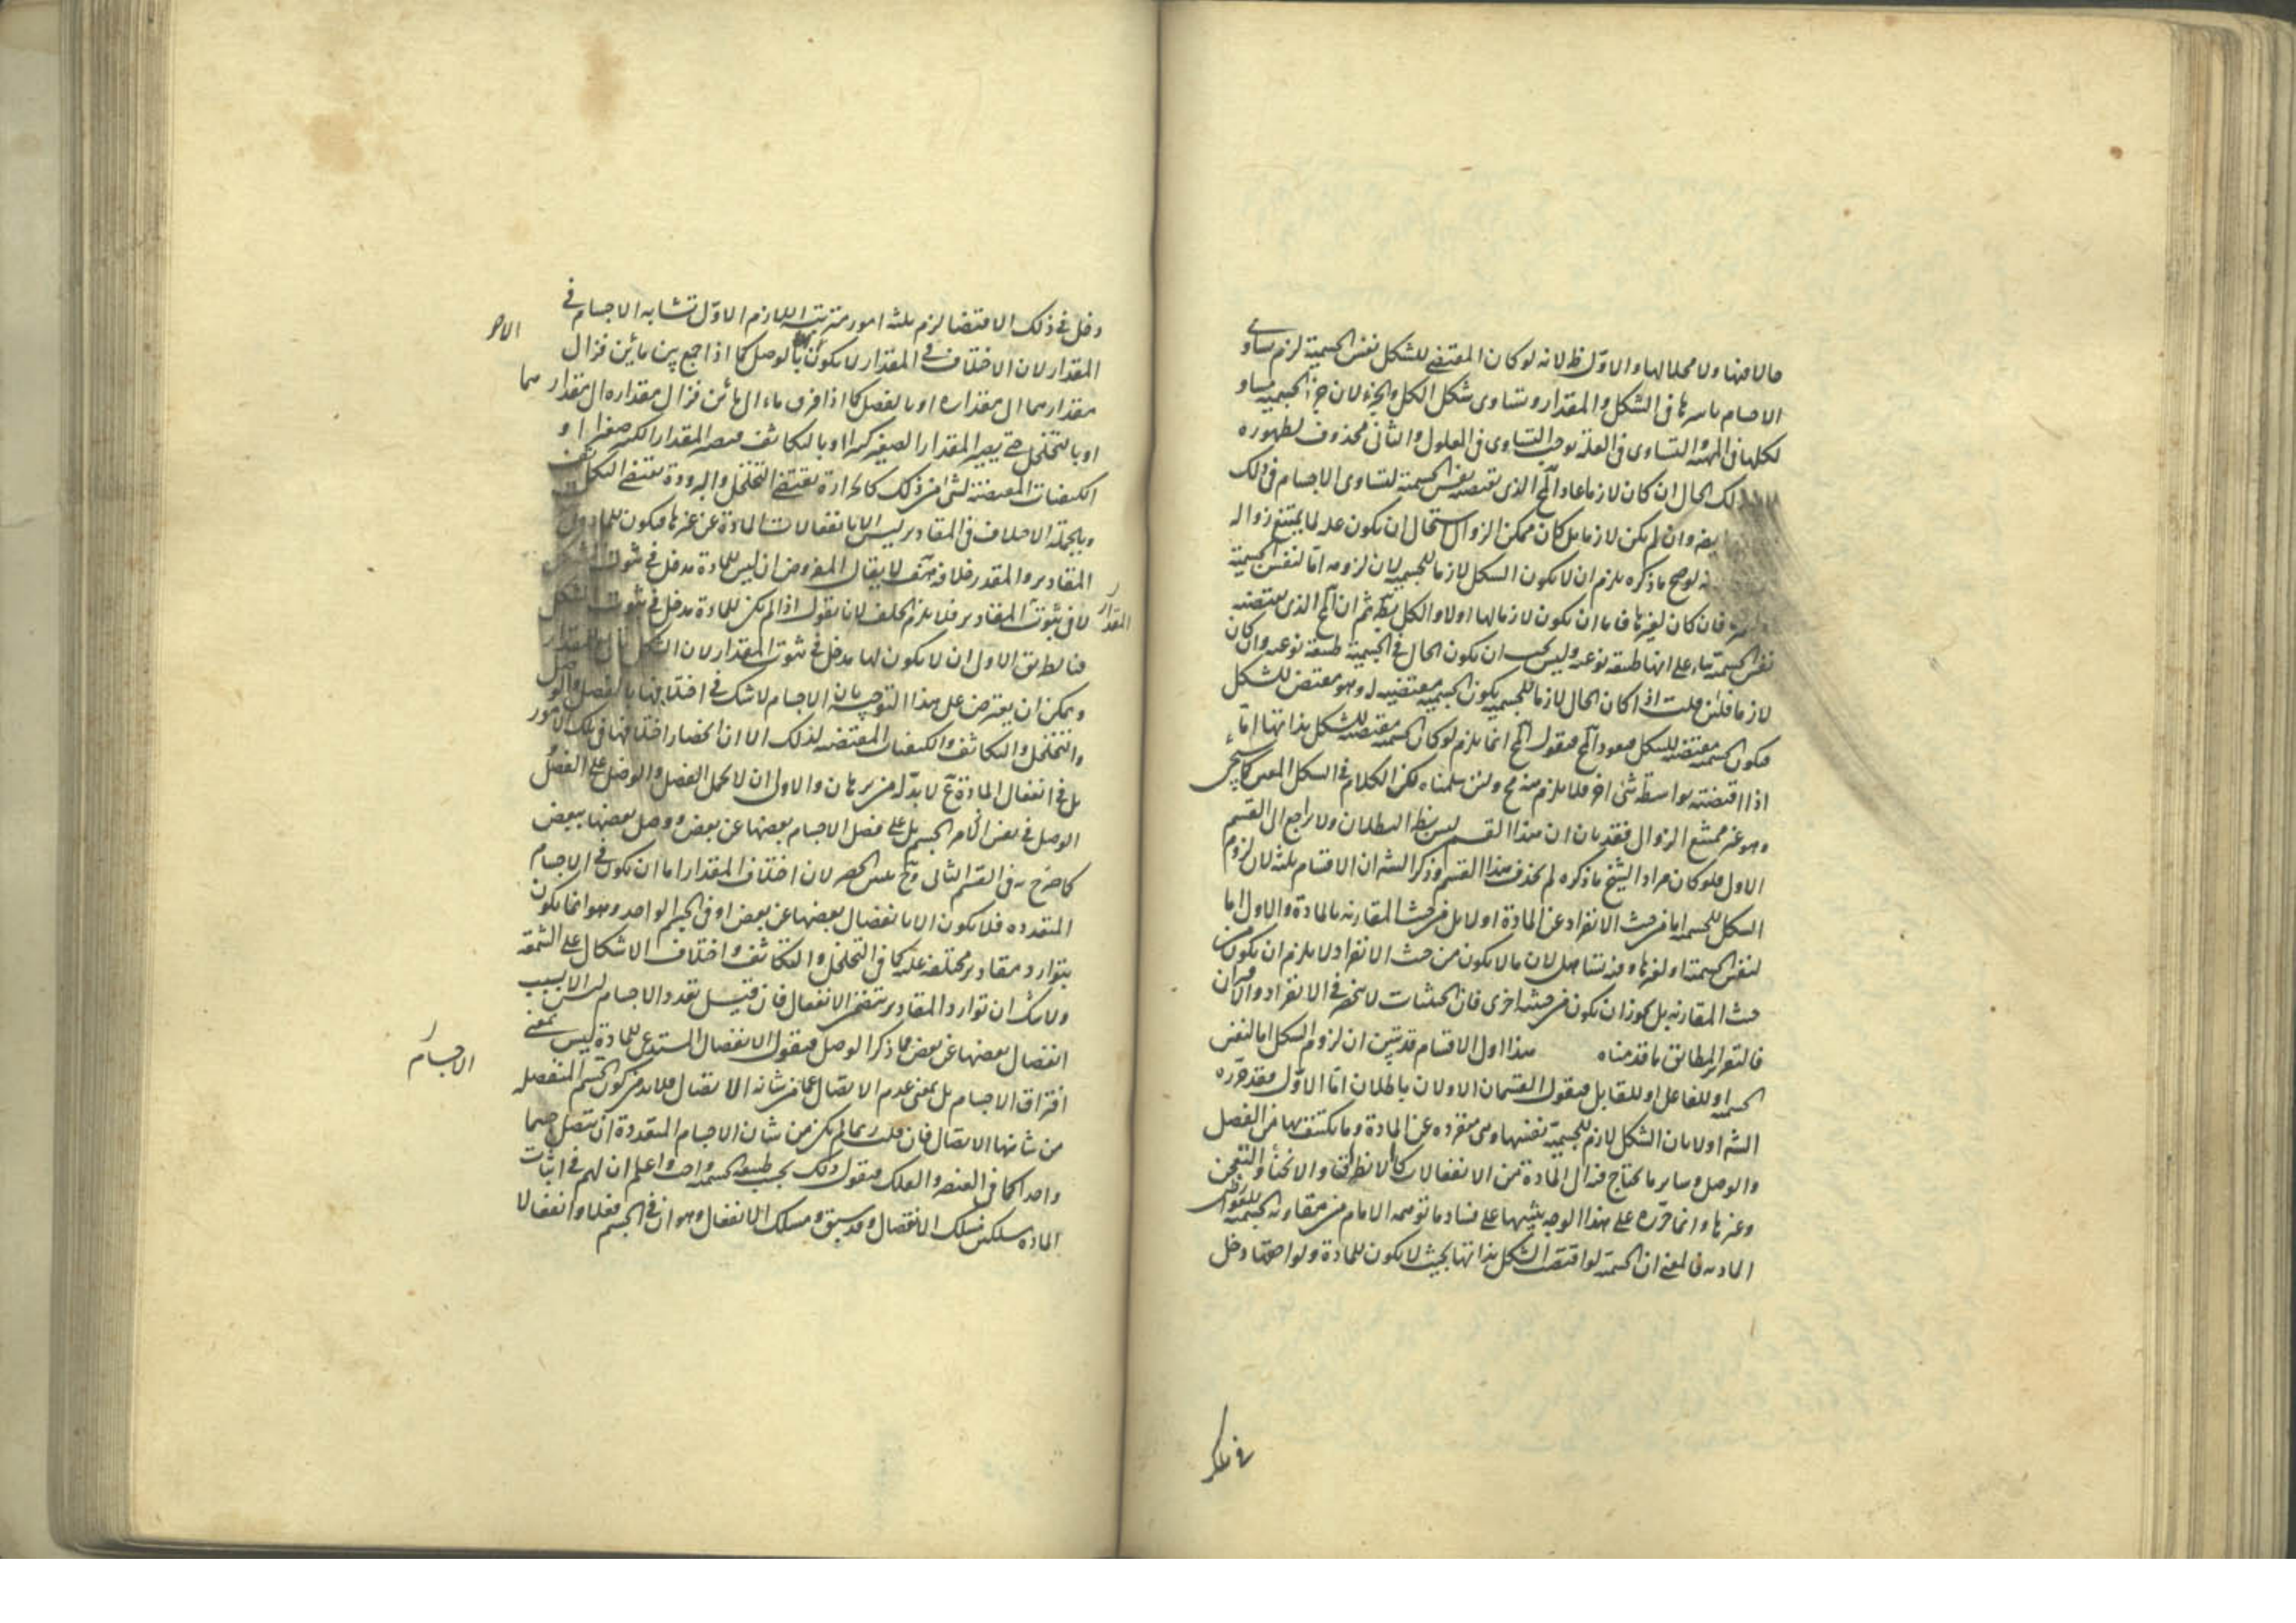 حالا فيها ولا محلا لها والاول ظ لانه لو كان المقتضى للشكل نفس الجسمية لزم تساوى
الاجسام باسرها فى الشكل والمقدار وتساوى شكل الكل والجزء لان جزء الجسمية مساو
لكلها فى المهية والتساوى فى العلة يوجب التساوى فى المعلول والثانى محذوف لظهوره
لك الحال ان كان لازما عاد المح الذى تقتضيه نفس الجسمية لتساوى الاجسام فى ذلك
وان لم يكن لازما بل كان ممكن الزوال استحال ان يكون علة لما يمتنع زواله
لو صح ما ذكره يلزم ان لا يكون الشكل لازما للجسمية لان لزومه اما لنفس الجسمية
فان كان لغيرها فاما ان يكون لازما لها اولا والكل بط ثم ان المح الذى تقتضيه
نفس الجسمية بناء على انها طبيعة نوعية وليس يجب ان يكون الحال فى الجسمية طبيعة نوعية وان كان
لازما فلئن قلت اذا كان الحال لازما للجسمية يكون الجسمية مقتضية له وهو مقتض للشكل
فيكون الجسمية مقتضية للشكل فيعود المح فنقول المح انما يلزم لو كان الجسمية مقتضية للشكل بذاتها اما
اذا اقتضته بواسطة شئ اخر فلا يلزم منه مح ولئن سلمناه لكن الكلام فى الشكل المعين كما سيجئ
وهو غير ممتنع الزوال فقد بان ان هذا القسم ليس بظ البطلان ولا راجع الى القسم
الاول فلو كان مراد الشيخ ما ذكره لم يحذف هذا القسم وذكر الشه ان الاقسام ثلثة لان لزوم
الشكل للجسمية اما من حيث الانفراد عن المادة اولا بل من حيث المقارنة بالمادة والاول اما
لنفس الجسمية او لغيرها وفيه تساهل لان ما لا يكون من حيث الانفراد لا يلزم ان يكون من
حيث المقارنة بل يجوز ان يكون من حيثية اخرى فان الحيثيات لا تنحصر فى الانفراد والاقتران
فالتقرير المطابق ما قدمناه هذا اول الاقسام قد تبين ان لزوم الشكل اما لنفس
الجسمية او للفاعل او للقابل فنقول القسمان الاولان باطلان اما الاول فقد قرره
الشه اولا بان الشكل لازم للجسمية بنفسها وهى منفردة عن المادة وما يكتنفها من الفصل
والوصل وساير ما يحتاج فيه الى المادة من الانفعالات كالانطراق والانحناء والتعجن
وغيرها وانما حرره على هذا الوجه تنبيها على فساد ما توهمه الامام من مقارنة الجسمية للعوارض
المادية فالمعنى ان الجسمية لو اقتضت الشكل بذاتها بحيث لا يكون للمادة ولواحقها دخل
دخل فى ذلك الاقتضا لزم ثلثة امور مترتبة اللازم الاول تشابه الاجسام فى
المقدار لان الاختلاف فى المقدار لا يكون الا بالوصل كما اذا جمع بين مائين فزال
مقدارهما الى مقدار او بالفصل كما اذا فرق ماء الى مائين فزال مقداره الى مقدارهما
او بالتخلخل حتى يصير المقدار الصغير كبيرا او بالتكاثف فيصير المقدار الكبير صغيرا او
الكيفيات المقتضية لشئ من ذلك كالحرارة تقتضى التخلخل والبرودة تقتضى التكاثف
وبالجملة الاختلاف فى المقادير ليس الا بانفعالات المادة عن غيرها فيكون للمادة دخل فى
المقادير والمقدر خلافه هف لا يقال المفروض ان ليس للمادة مدخل فى ثبوت الشكل
لا فى ثبوت المقادير فلا يلزم الخلف لانا نقول اذا لم يكن للمادة مدخل فى ثبوت الشكل
فبالطريق الاول ان لا يكون لها مدخل فى ثبوت المقدار لان الشكل تابع للمقدار
ويمكن ان يعترض على هذا التوجيه بان الاجسام لا شك فى اختلافها بالفصل والوصل
والتخلخل والتكاثف والكيفيات المقتضية لذلك الا ان انحصار اختلافها فى تلك الامور
بل فى انفعال المادة مح لا بد له من برهان والاولى ان لا يحمل الفصل والوصل على الفصل
الوصل فى نفس الامر الجسم بل على فصل الاجسام بعضها عن بعض ووصل بعضها ببعض
كما صرح به فى القسم الثانى وح يتبين الحصر لان اختلاف المقدار اما ان يكون فى الاجسام
المتعددة فلا يكون الا بانفصال بعضها عن بعض او فى الجسم الواحد وهو انما يكون
بتوارد مقادير مختلفة عليه كما فى التخلخل والتكاثف واختلاف الاشكال على الشمعة
ولا شك ان توارد المقادير يتضمن الانفعال فان قيل تعدد الاجسام ليس الا بسبب
انفصال بعضها عن بعض فما ذكر الوصل فنقول الانفصال المستدعى للمادة ليس بمعنى
افتراق الاجسام بل بمعنى عدم الاتصال عما من شانه الاتصال فلا بد من كون الجسم المنفصلة
من شانها الاتصال فان قلت ربما لم يكن من شان الاجسام المتعددة ان تتصل جسما
واحدا كما فى العنصر والفلك فنقول ذلك بحسب طبيعة الجسمية واحد واعلم ان لهم فى اثبات
المادة مسلكين مسلك الانفصال وقد سبق ومسلك الانفعال وهو ان فى الجسم فعلا وانفعالا
المقدار
الاجسام